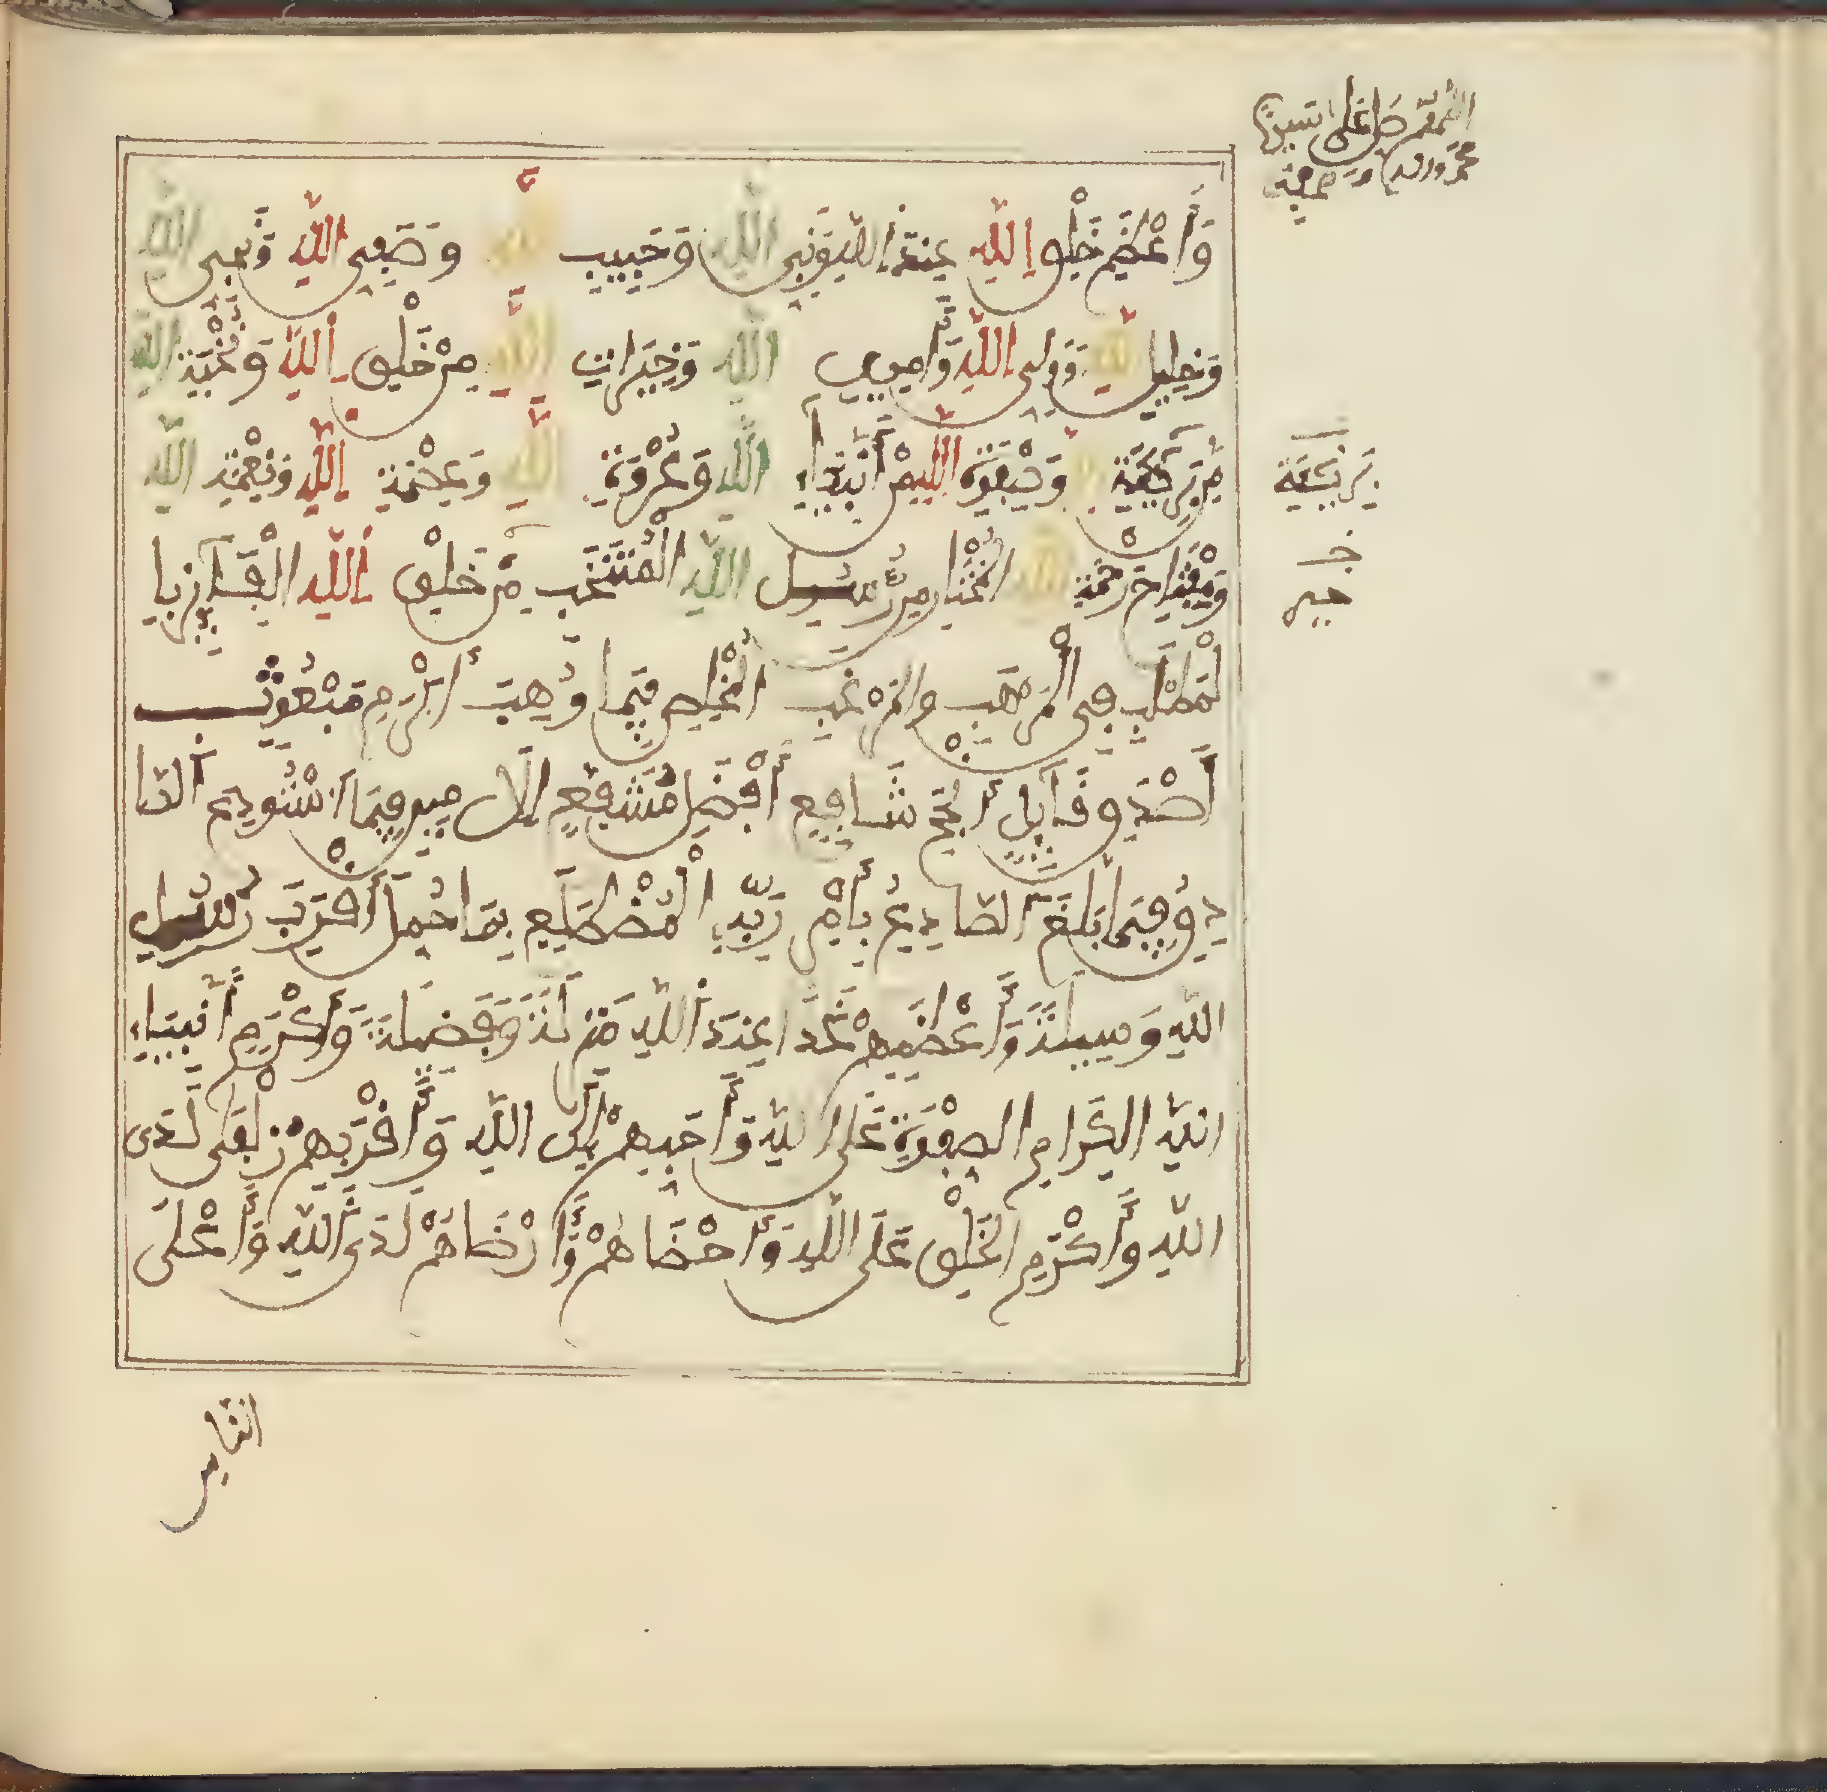 اللهم صل على سيدنا
محمد واله وصحبه
وَأَعْظَمِ خَلْقِ اللهِ عِنْدَ اللهِ وَنَبِيِّ اللهِ وَحَبِيبِ اللهِ وَصَفِيِّ اللهِ وَنَجِيِّ اللهِ
وَخَلِيلِ اللهِ وَوَلِيِّ اللهِ وَأَمِينِ اللهِ وَخِيَرَاتِ اللهِ مِنْ خَلْقِ اللهِ وَنُخْبَةِ اللهِ
مِنْ بَرِيَّةِ اللهِ وَصَفْوَةِ اللهِ مِنْ أَنْبِيَاءِ اللهِ وَعُرْوَةِ اللهِ وَعِصْمَةِ اللهِ وَنِعْمَةِ اللهِ
وَمِفْتَاحِ رَحْمَةِ اللهِ الْمُخْتَارِ مِنْ رُسُلِ اللهِ الْمُنْتَخَبِ مِنْ خَلْقِ اللهِ الْفَائِزِ با
لْمَطْلَبِ فِي الْمَرْهَبِ وَالْمَرْغَبِ الْمُخْلَصِ فِيمَا وُهِبَ أَكْرَمِ مَبْعُوثٍ
أَصْدَقِ قَائِلٍ أَنْجَحِ شَافِعٍ أَفْضَلِ مُشَفَّعٍ الْأَمِينِ فِيمَا اسْتُودِعَ الصَّا
دِقِ فِيمَا بَلَّغَ الصَّادِعِ بِأَمْرِ رَبِّهِ الْمُضْطَلِعِ بِمَا حُمِّلَ أَقْرَبِ رُسُلِ
اللهِ وَسِيلَةً وَأَعْظَمِهِمْ غَدًا عِنْدَ اللهِ مَنْزِلَةً وَفَضِيلَةً وَأَكْرَمِ أَنْبِيَاءِ
اللهِ الْكِرَامِ الصَّفْوَةِ عَلَى اللهِ وَأَحَبِّهِمْ إِلَى اللهِ وَأَقْرَبِهِمْ زُلْفَى لَدَى
اللهِ وَأَكْرَمِ الْخَلْقِ عَلَى اللهِ وَأَحْظَاهُمْ وَأَرْضَاهُمْ لَدَى اللهِ وَأَعْلَى
الناس